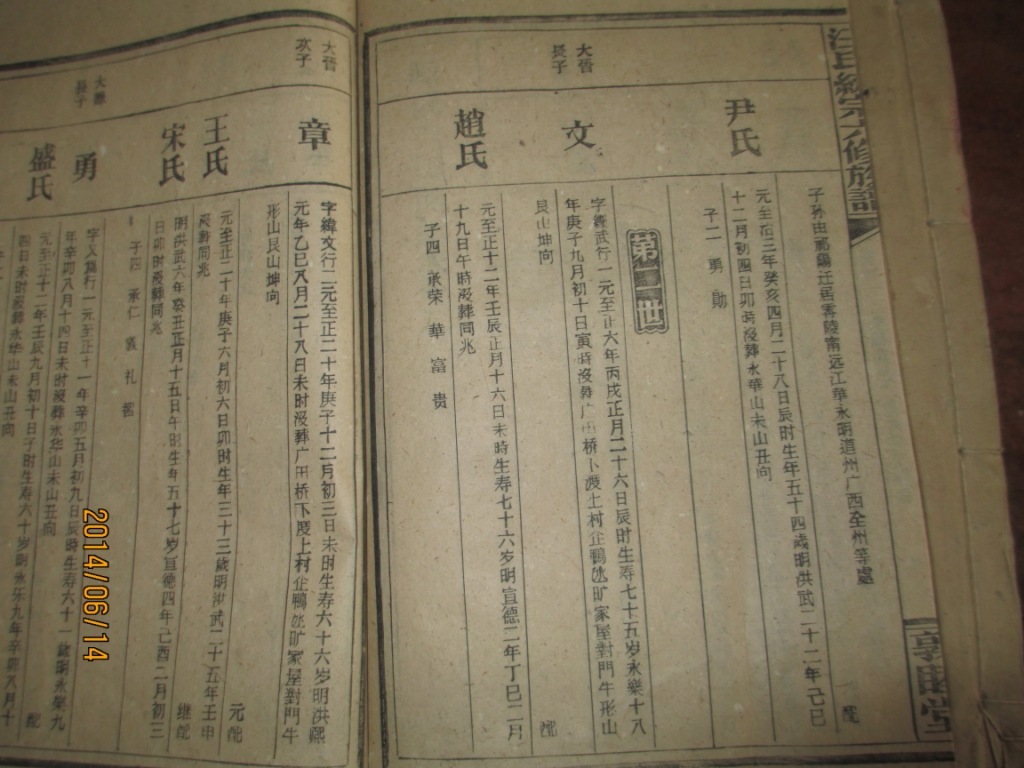 修族譜
尹氏
子孙由
迁居零陵甯远江华永明道州广西全州等處
配
元至治三年癸亥四月二十八日辰时生年五十四歲明洪武二十二年己巳
十二月初四日卯時殁葬永華山未山丑向
子二 勇 勛
第二世
大晉
長子
文
字緯武行一元至正六年丙戌正月二十六日辰时生寿七十五岁永樂十八
年庚子九月初十日寅時殁葬广田桥下渡上村企鴨
旷家屋對門牛形山
艮山坤向
配
趙氏
元至正十二年壬辰正月十六日未時生寿七十六岁明宣德二年丁巳二月
十九日午時殁葬同兆
子四 承荣 華 富 贵
大晉
次子
章
字緯文行二元至正二十年庚子十二月初三日未时生寿六十六岁明洪熙
元年乙巳八月二十八日未时殁葬广田桥下
上村企鴨
旷家屋對門牛
形山艮山坤向
元配
王氏
元至正二十年庚子六月初六日卯时生年三十三歲明洪武二十五年壬申
殁葬同兆
继配
宋氏
明洪武六年癸丑正月十五日午时生年五十七岁宣德四年己酉二月初三
日卯时殁葬同兆
子四 承仁 義 礼 智
長子
勇
年辛卯五月初九日辰時生寿六十一歲明永樂九
年辛卯八月十四日未时殁葬永华山未山丑向
配
盛氏
元至正十二年壬辰九月初十日子时生寿六十岁明永乐九年辛卯八月十
四日未时殁葬永华山未山丑向
2014/06/14